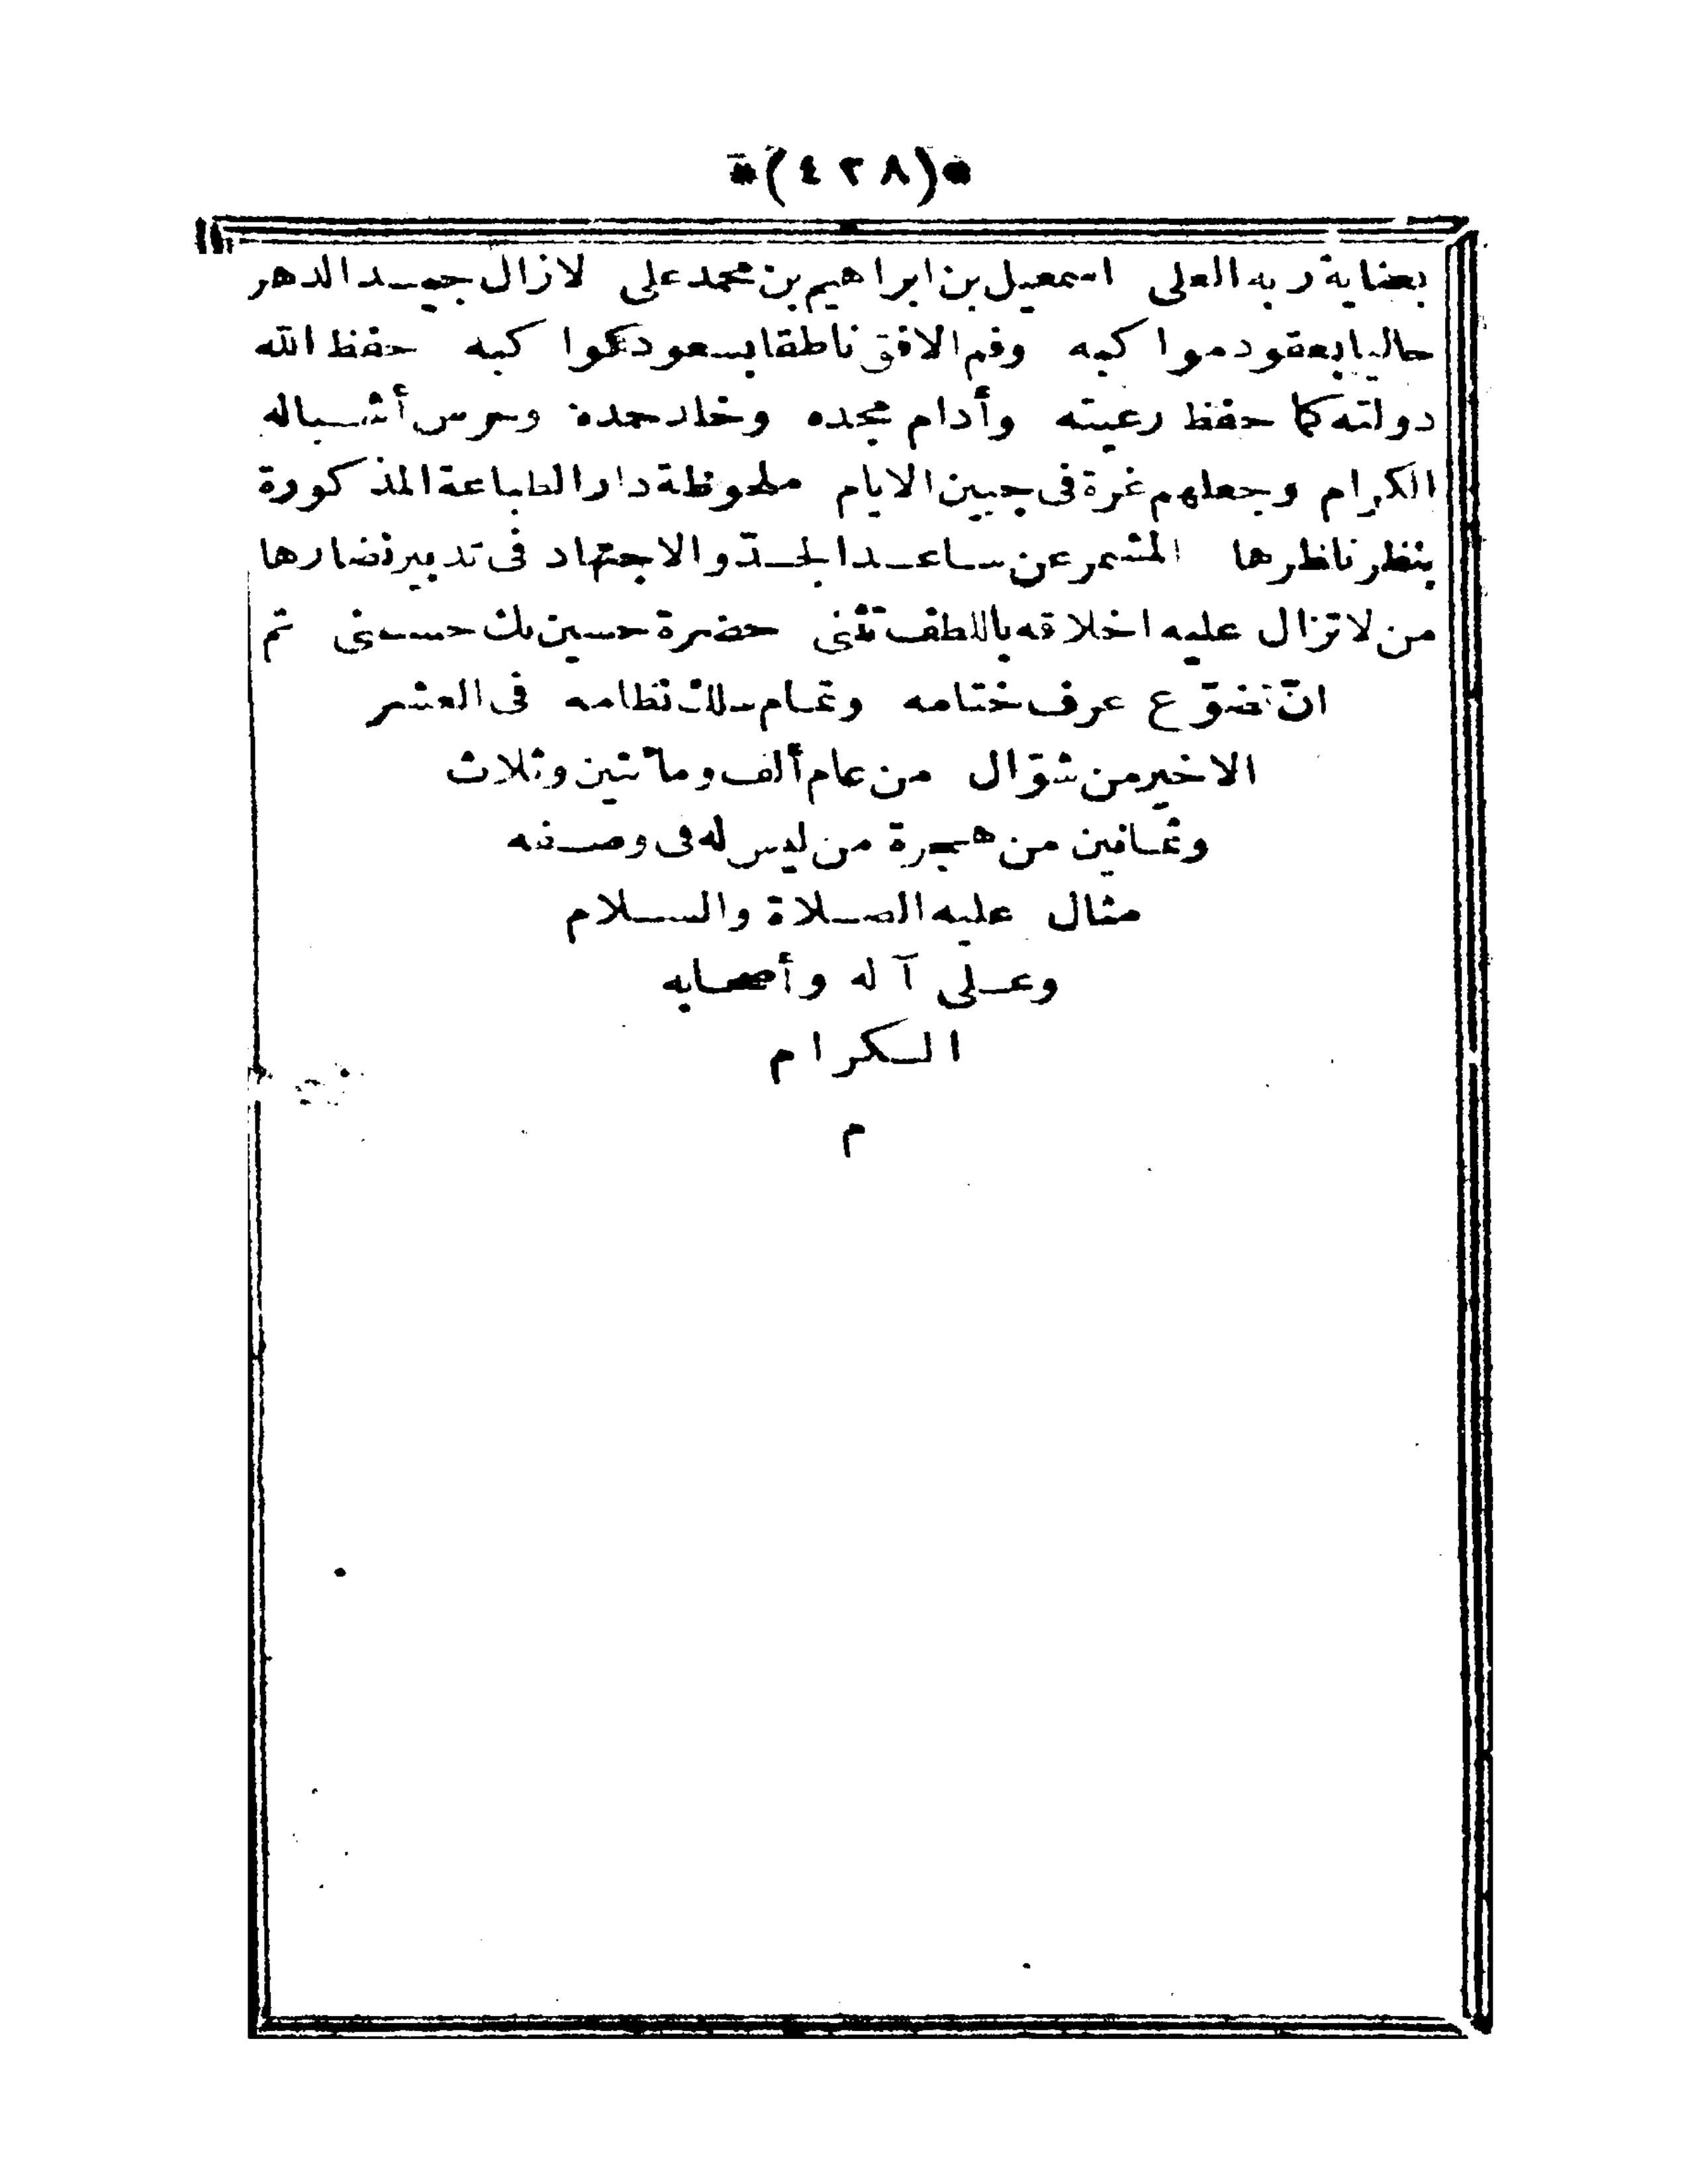 *(٤٢٨)*
بعناية ربه العلى اسمعيل بن ابراهيم بن محمد على لازال جيد الدهر
حاليا بعقود مواكبه وفم الافق ناطقا بسعود كواكبه حفظ الله
دولته كما حفظ رعيته وأدام مجده وخلد حمده وحرس أشباله
الكرام وجعلهم غرة فى جبين الايام ملحوظة دار الطباعة المذكورة
بنظر ناظرها المشمر عن ساعد الجدّ والاجتهاد فى تدبير نضارها
من لاتزال عليه اخلاقه باللطف تثنى حضرة حسين بك حسنى ثم
انّ تضوّع عرف ختامه وتمام سلك نظامه فى العشر
الاخير من شوّال من عام ألف ومائتين وثلاث
وثمانين من هجرة من ليس له فى وصفه
مثال عليه الصلاة والسلام
وعلى آله وأصحابه
الكرام
م